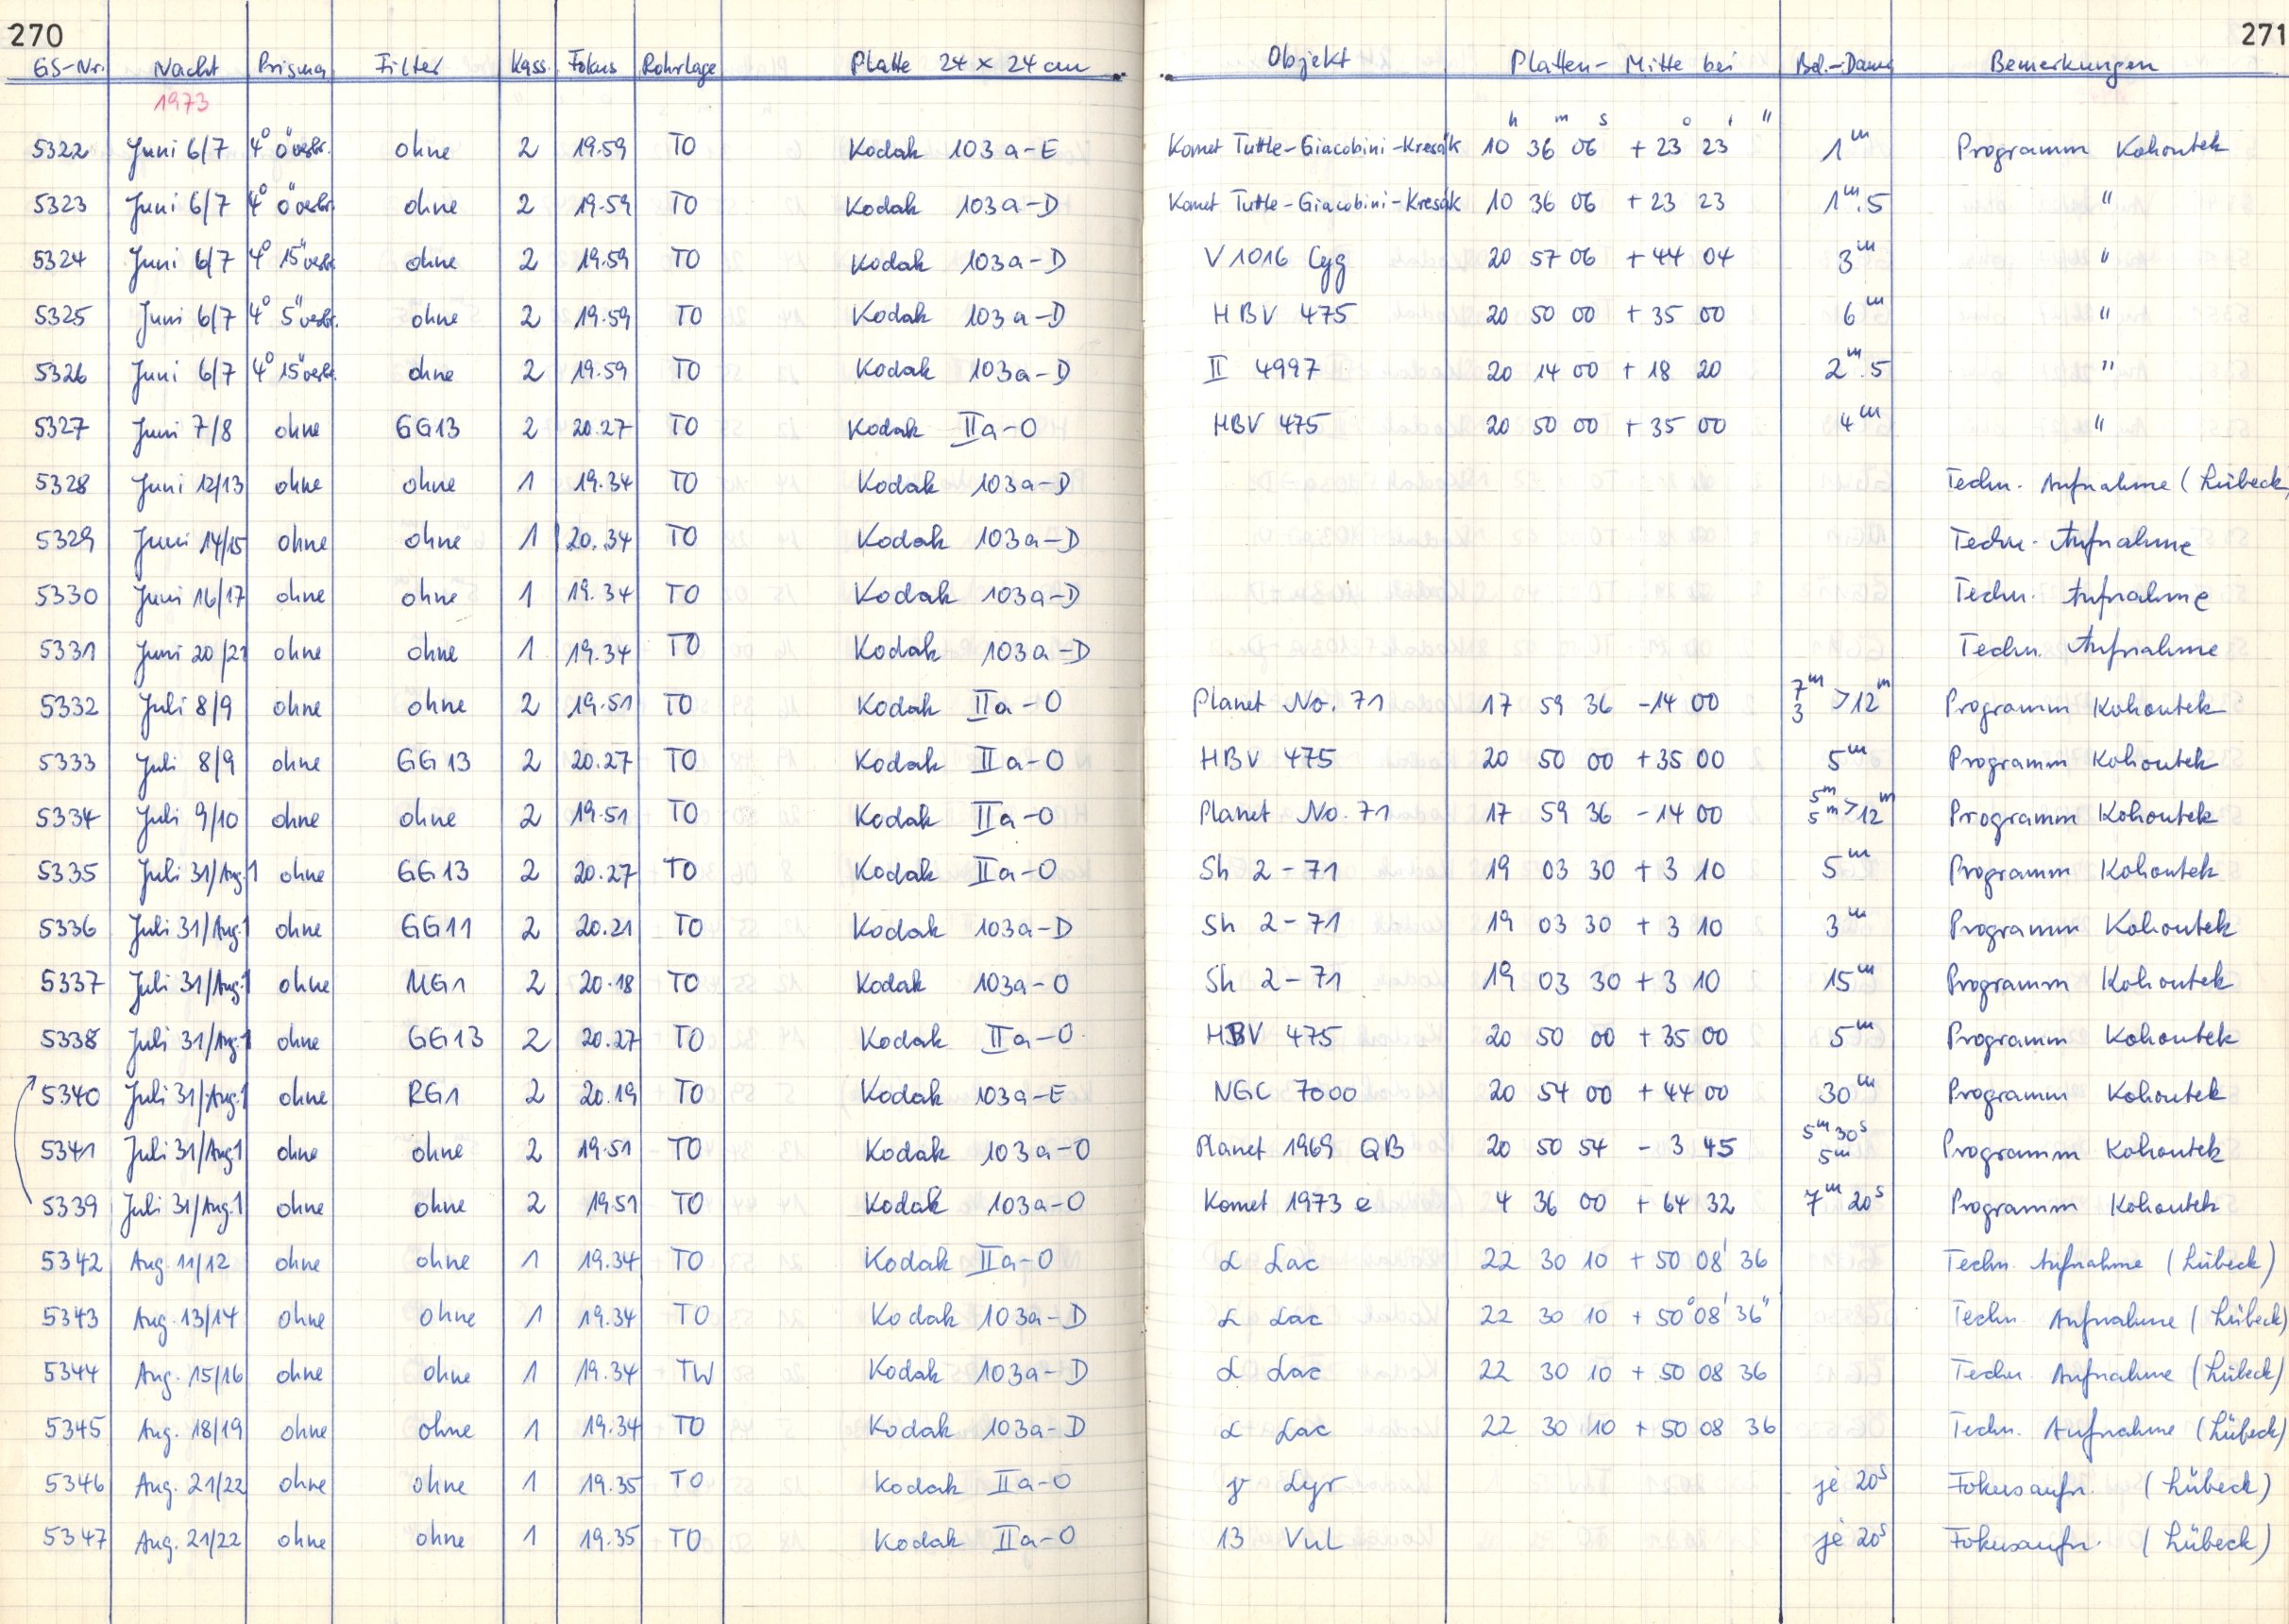 270 271
GS-Nr. Nacht Prisma Filter Kass. Fokus Rohrlage Platte 24 × 24 cm Objekt Platten-Mitte bei Bel.-Dauer Bemerkungen
1973
h m s ° ' "
5322 Juni 6/7 4° 0" verbr. ohne 2 19.59 TO Kodak 103a-E Komet Tuttle-Giacobini-Kresák 10 36 06 + 23 23 1m Programm Kohoutek
5323 Juni 6/7 4° 0" verbr. ohne 2 19.59 TO Kodak 103a-D Komet Tuttle-Giacobini-Kresák 10 36 06 + 23 23 1m.5 "
5324 Juni 6/7 4° 15" verbr. ohne 2 19.59 TO Kodak 103a-D V 1016 Cyg 20 57 06 + 44 04 3m "
5325 Juni 6/7 4° 5" verbr. ohne 2 19.59 TO Kodak 103a-D HBV 475 20 50 00 + 35 00 6m "
5326 Juni 6/7 4° 15" verbr. ohne 2 19.59 TO Kodak 103a-D II 4997 20 14 00 + 18 20 2m.5 "
5327 Juni 7/8 ohne GG13 2 20.27 TO Kodak IIa-O HBV 475 20 50 00 + 35 00 4m "
5328 Juni 12/13 ohne ohne 1 19.34 TO Kodak 103a-D Techn. Aufnahme (Lübeck)
5329 Juni 14/15 ohne ohne 1 20.34 TO Kodak 103a-D Techn. Aufnahme
5330 Juni 16/17 ohne ohne 1 19.34 TO Kodak 103a-D Techn. Aufnahme
5331 Juni 20/21 ohne ohne 1 19.34 TO Kodak 103a-D Techn. Aufnahme
5332 Juli 8/9 ohne ohne 2 19.51 TO Kodak IIa-O Planet No. 71 17 59 36 -14 00 7m 3 >12m Programm Kohoutek
5333 Juli 8/9 ohne GG13 2 20.27 TO Kodak IIa-O HBV 475 20 50 00 + 35 00 5m Programm Kohoutek
5334 Juli 9/10 ohne ohne 2 19.51 TO Kodak IIa-O Planet No. 71 17 59 36 -14 00 5m 5m >12m Programm Kohoutek
5335 Juli 31/Aug.1 ohne GG13 2 20.27 TO Kodak IIa-O Sh 2-71 19 03 30 + 3 10 5m Programm Kohoutek
5336 Juli 31/Aug.1 ohne GG11 2 20.21 TO Kodak 103a-D Sh 2-71 19 03 30 + 3 10 3m Programm Kohoutek
5337 Juli 31/Aug.1 ohne UG1 2 20.18 TO Kodak 103a-O Sh 2-71 19 03 30 + 3 10 15m Programm Kohoutek
5338 Juli 31/Aug.1 ohne GG13 2 20.27 TO Kodak IIa-O HBV 475 20 50 00 + 35 00 5m Programm Kohoutek
5340 Juli 31/Aug.1 ohne RG1 2 20.19 TO Kodak 103a-E NGC 7000 20 54 00 + 44 00 30m Programm Kohoutek
5341 Juli 31/Aug1 ohne ohne 2 19.51 TO Kodak 103a-O Planet 1969 QB 20 50 54 - 3 45 5m 30s 5m Programm Kohoutek
5339 Juli 31/Aug.1 ohne ohne 2 19.51 TO Kodak 103a-O Komet 1973 e 4 36 00 + 64 32 7m 20s Programm Kohoutek
5342 Aug. 11/12 ohne ohne 1 19.34 TO Kodak IIa-O α Lac 22 30 10 + 50 08' 36 Techn. Aufnahme (Lübeck)
5343 Aug. 13/14 ohne ohne 1 19.34 TO Kodak 103a-D α Lac 22 30 10 + 50° 08' 36" Techn. Aufnahme (Lübeck)
5344 Aug. 15/16 ohne ohne 1 19.34 TW Kodak 103a-D α Lac 22 30 10 + 50 08 36 Techn. Aufnahme (Lübeck)
5345 Aug. 18/19 ohne ohne 1 19.34 TO Kodak 103a-D α Lac 22 30 10 + 50 08 36 Techn. Aufnahme (Lübeck)
5346 Aug. 21/22 ohne ohne 1 19.35 TO Kodak IIa-O γ Lyr je 20s Fokusaufn. (Lübeck)
5347 Aug. 21/22 ohne ohne 1 19.35 TO Kodak IIa-O 13 Vul je 20s Fokusaufn. (Lübeck)